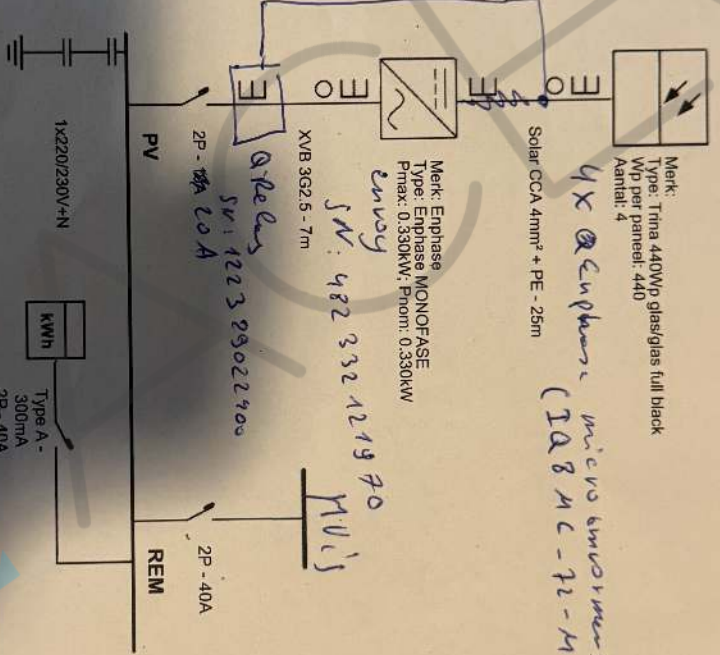 Merk:
Type: Trina 440Wp glas/glas full black
Wp per paneel: 440
Aantal: 4
4x Enphase micro omvormer
(IQ8MC-72-M
Solar CCA 4mm² + PE - 25m
Merk: Enphase
Type: Enphase MONOFASE
Pmax: 0.330kW; Pnom: 0.330kW
envoy
SN: 482332121970
XVB 3G2.5 - 7m
QRelay
SN: 122329022400
2P - 20A
PV
1x220/230V+N
kWh
Type A -
300mA
2P - 40A
2P - 40A
REM